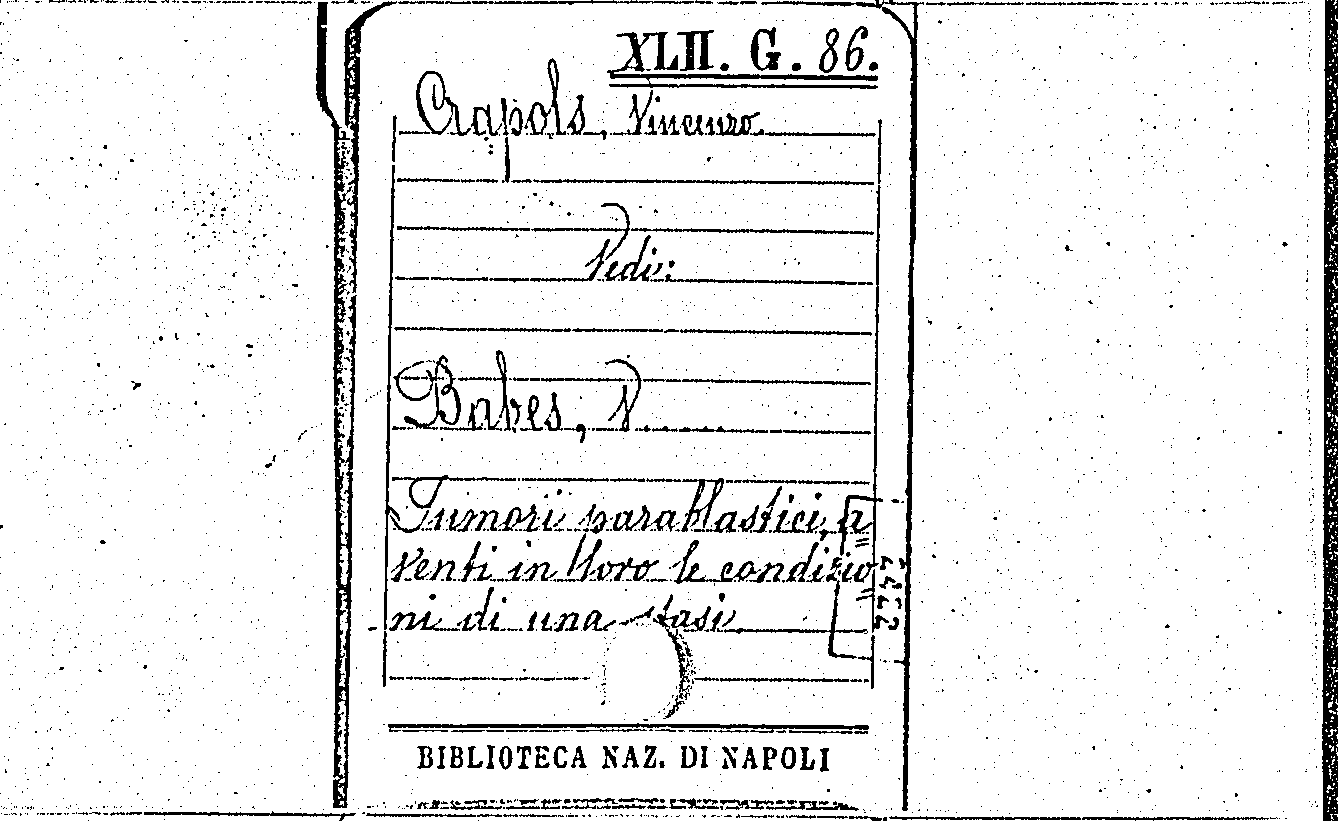 XLII. G. 86.
Crapols, Vincenzo.
Vedi:
Babes, V.....
Tumori parablastici, a
venti in loro le condizio
ni di una stasi.
BIBLIOTECA NAZ. DI NAPOLI